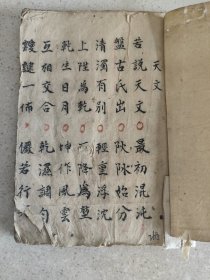 天文
若說天文 最初混沌
盤古氏出 始分
清濁有別 輕重浮沉
上陞為乾 下降為堃
乾生日月 坤作風雲
互相交合 乾濕調勻
一佈 儼若行